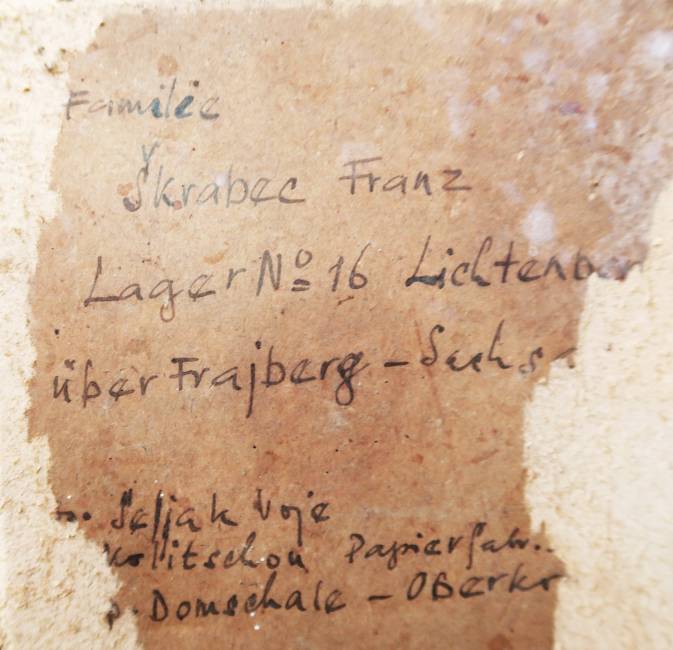 Familie
Škrabec Franz
Lager Nº 16 Lichtenber
über Frajberg - Sachs
Seljak Voje
kolitschou Papierfabr..
p. Domschale - Oberkr